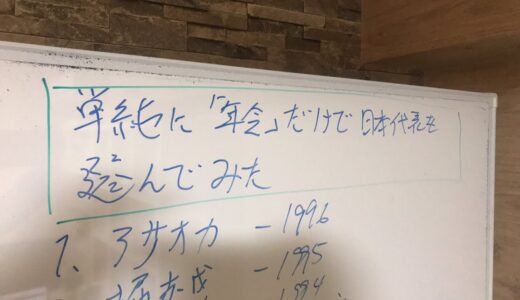 単純に「年令」だけで日本代表を
選んでみた
1、アサオカ - 1996
- 1995
1994